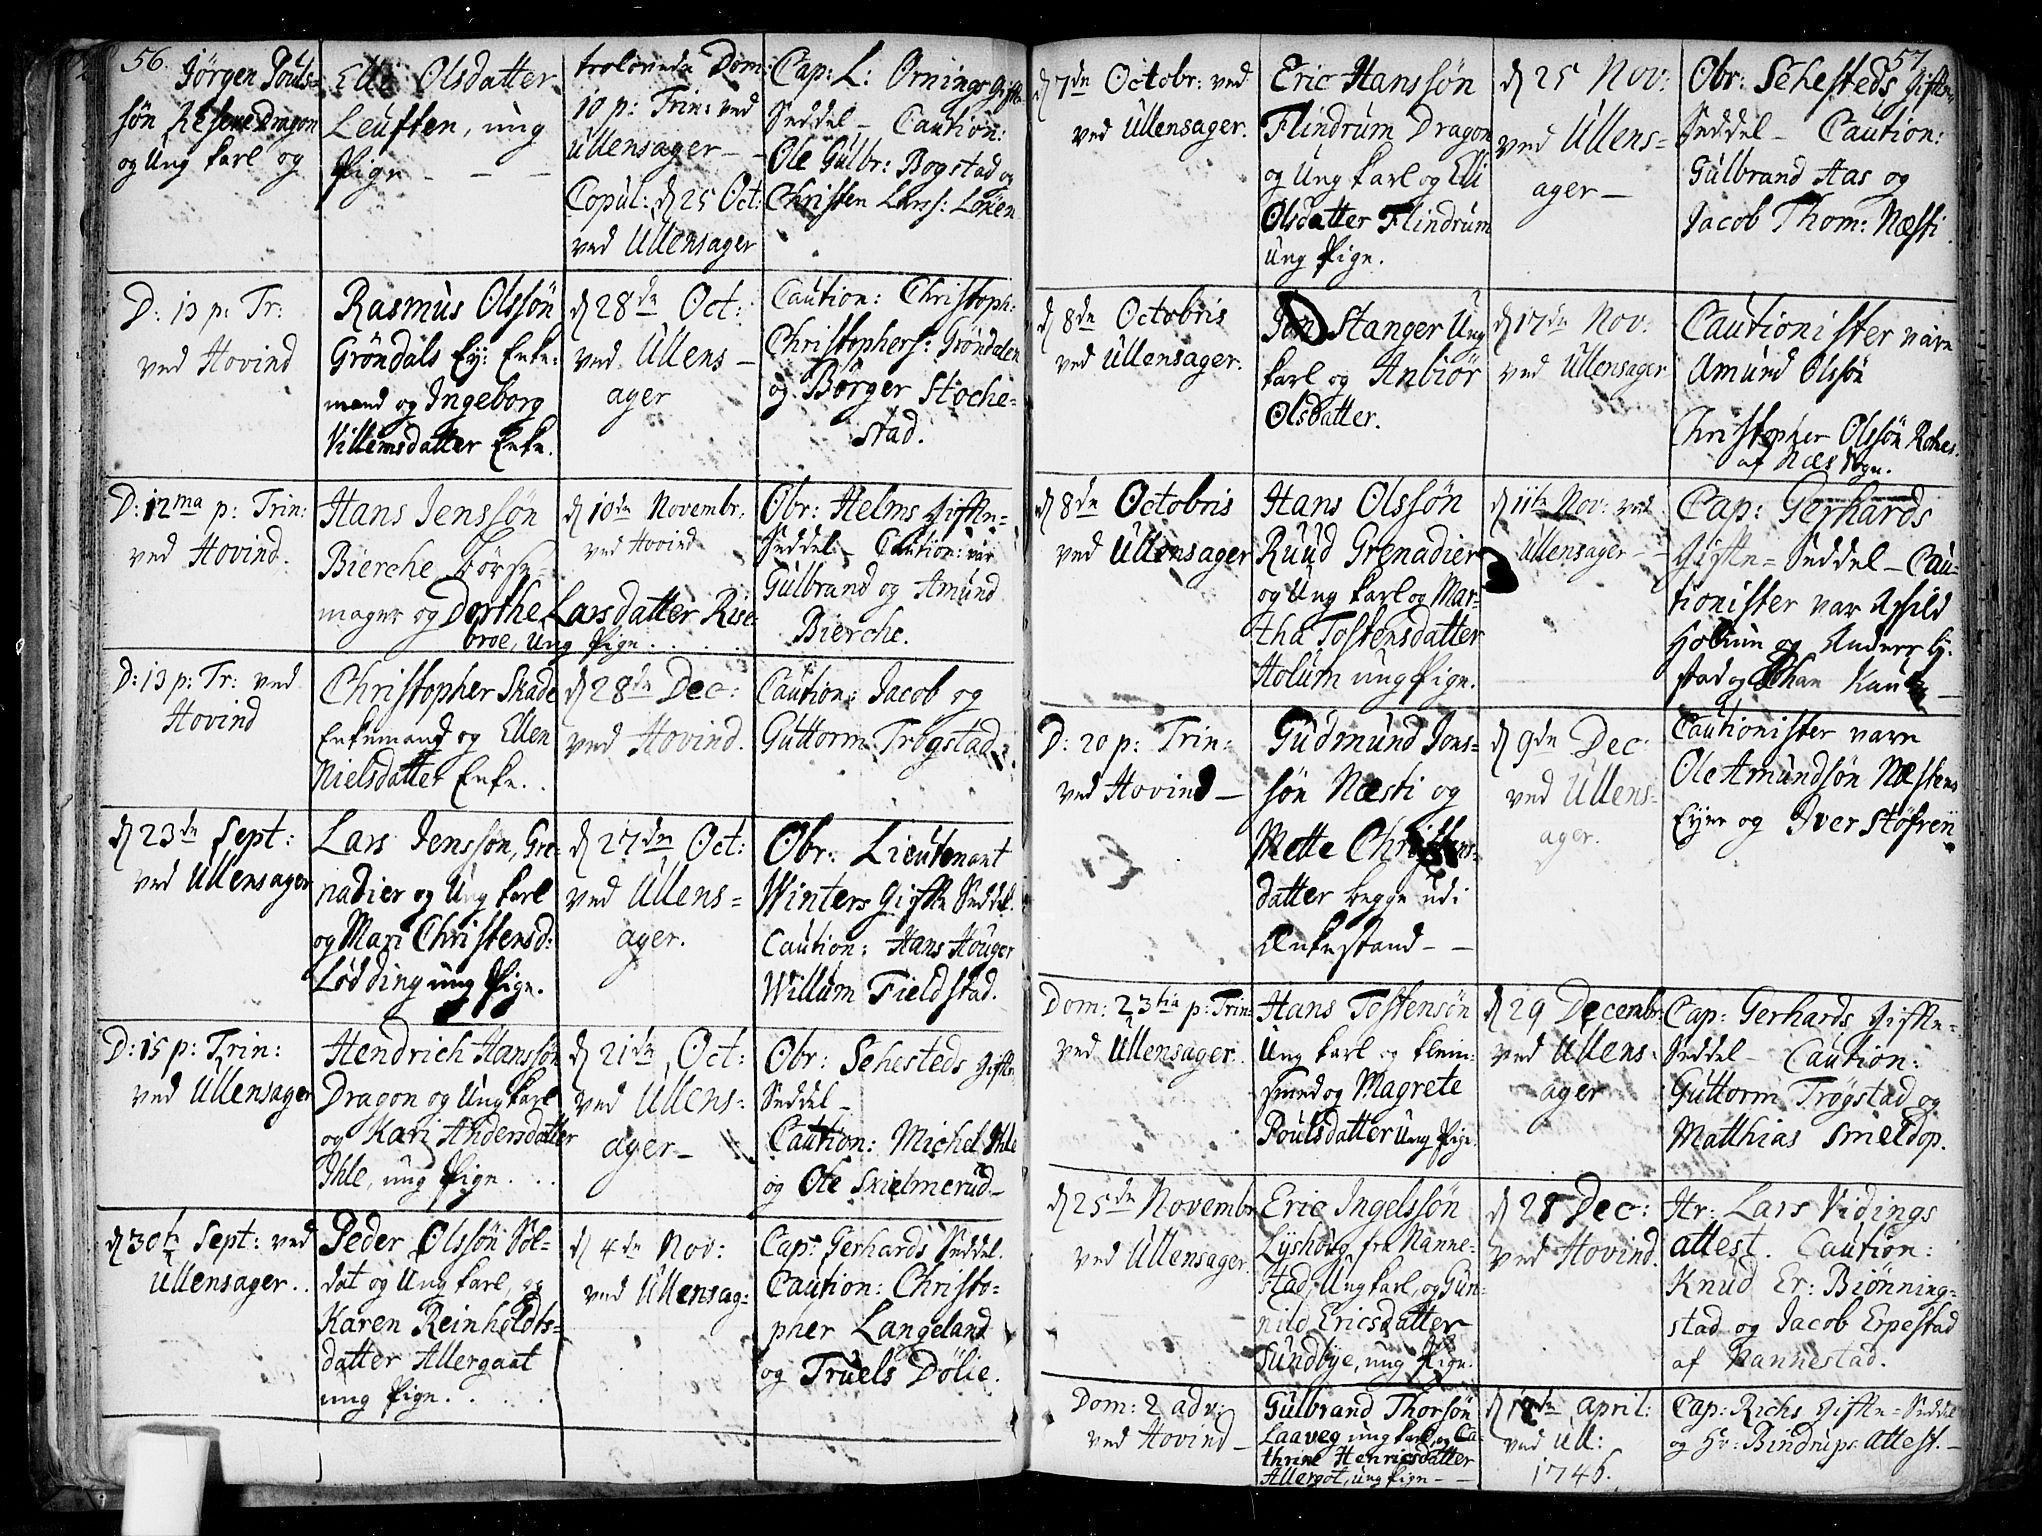 56.
Jörgen Pouls-
sön Reserve Dragon
og Ung karl og
Elli Olsdatter
Leuften, ung
Pige - - -
trolovede Dom:
10 p: Trin: ved
Ullensager - -
Copul: d 25 Oct:
ved Ullensager
Cap: L: Ornings gifte
Seddel - Caution:
Ole Gulbr: Bogstad og
Christen Lars: Löken
D: 13 p: Tr:
ved Hovind
Rasmus Olssön
Gröndals Ey: Enke-
mand og Ingeborg
Villemsdatter Enke.
d 28de Oct:
ved Ullens-
ager
Caution: Christoph:
Christophers: Gröndalen
og Börger Stoche-
stad.
D: 12ma p: Trin:
ved Hovind.
Hans Jenssön
Bierche Börse-
mager og Dorthe Larsdatter Rise-
broe, Ung Pige . . . .
d 10de Novembr.
ved Hovind
Obr: Helms gifte=
Seddel - Caution: var
Gulbrand og Amund
Bierche.
D: 13 p: Tr: ved
Hovind
Christopher Skade
Enkemand og Ellen
Nielsdatter Enke. .
d 28de Dec:
ved Hovind.
Caution: Jacob og
Guttorm Trögstad.
d 23de Sept:
ved Ullensager
Lars Jensson, Gre-
nadier og Ung karl
og Mari Christensd:
Lödding ung Pige.
d 27de Oct:
ved Ullens=
ager.
Obr: Lieutenant
Winters Gifte Seddel.
Caution: Hans Houger
Willum Fieldstad.
D: 15 p: Trin:
ved Ullensager
Hendrich Hanssön
Dragon og Ung karl
og Kari Andersdatter
Ihle, ung Pige. . .
d 21de Oct:
ved Ullens=
ager -
Obr: Sehesteds gifte
Seddel -
Caution: Michel Ihle
og Ole Skielmerud -
d 30te Sept: ved
Ullensager . .
Peder Olssön Sol-
dat og Ung karl, og
Karen Reinholdts-
datter Allergaat
ung Pige. . . .
d 4de Nov:
ved Ullensag=
Cap: Gerhards Seddel.
Caution: Christo-
pher Langeland
og Truels Dölie.
57.
d 7de Octobr: ved
ved Ullensager.
Eric Hanssön
Flindrum Dragon
og Ung karl og Elli
Olsdatter Flindrum
ung Pige.
d 25 Nov:
ved Ullens=
ager -
Obr: Sehesteds gifte-
Seddel - Caution:
Gulbrand Aas og
Jacob Thom: Næsti.
d 8de Octobris
ved Ullensager.
Jon Stanger Ung
karl og Anbiör
Olsdatter.
d 17de Nov:
ved Ullensager
Cautionister vare
Amund Olssön
Christopher Olssön
af Næs Sogn.
d 8de Octobris
ved Ullensager
Hans Olssön
Ruud Grenadier
og Ung karl og Mar-
tha Tostensdatter
Holum ung Pige.
d 11te Nov: ved
Ullensager -
Cap: Gerhards
Gifte=Seddel - Cau-
tionister var
Holum og Anders H.
stad og Johan
D: 20 p: Trin:
ved Hovind -
Gudmund Jons-
sön Næsti og
Mette Christens-
datter begge udi
Enkestand - -
d 9de Dec:
ved Ullens-
ager.
Cautionister vare
Ole Amundsön Næstens
Eyer og Iver Stöfren
Dom: 23tia p: Trin:
ved Ullensager.
Hans Tostensön
Ung karl og klein-
smed og Magrete
Poulsdatter Ung Pige.
d 29 Decembr:
ved Ullens-
ager
Cap: Gerhards gifte-
Seddel - Caution:
Guttorm Trögstad og
Matthias Smeldop.
d 25de Novembr
ved Ullensager.
Eric Ingelssön
Lyshoug fra Nanne-
stad, Ung karl, og Gun-
nild Ericsdatter
Sundbye, ung Pige.
d 28 Dec:
ved Hovind.
Hr: Lars Vidings
attest. Caution:
Knud Er: Biönning-
stad og Jacob Erpestad
af Nannestad.
Dom: 2 adv:
ved Hovind -
Gulbrand Thorsön
Laaveg ung karl, og Ca-
thrine Henricsdatter
Allergot, ung Pige - -
d 18de April:
ved Ull:
1746.
Cap: Richs Gifte=Seddel
og Hr: Bindrups Attest. -